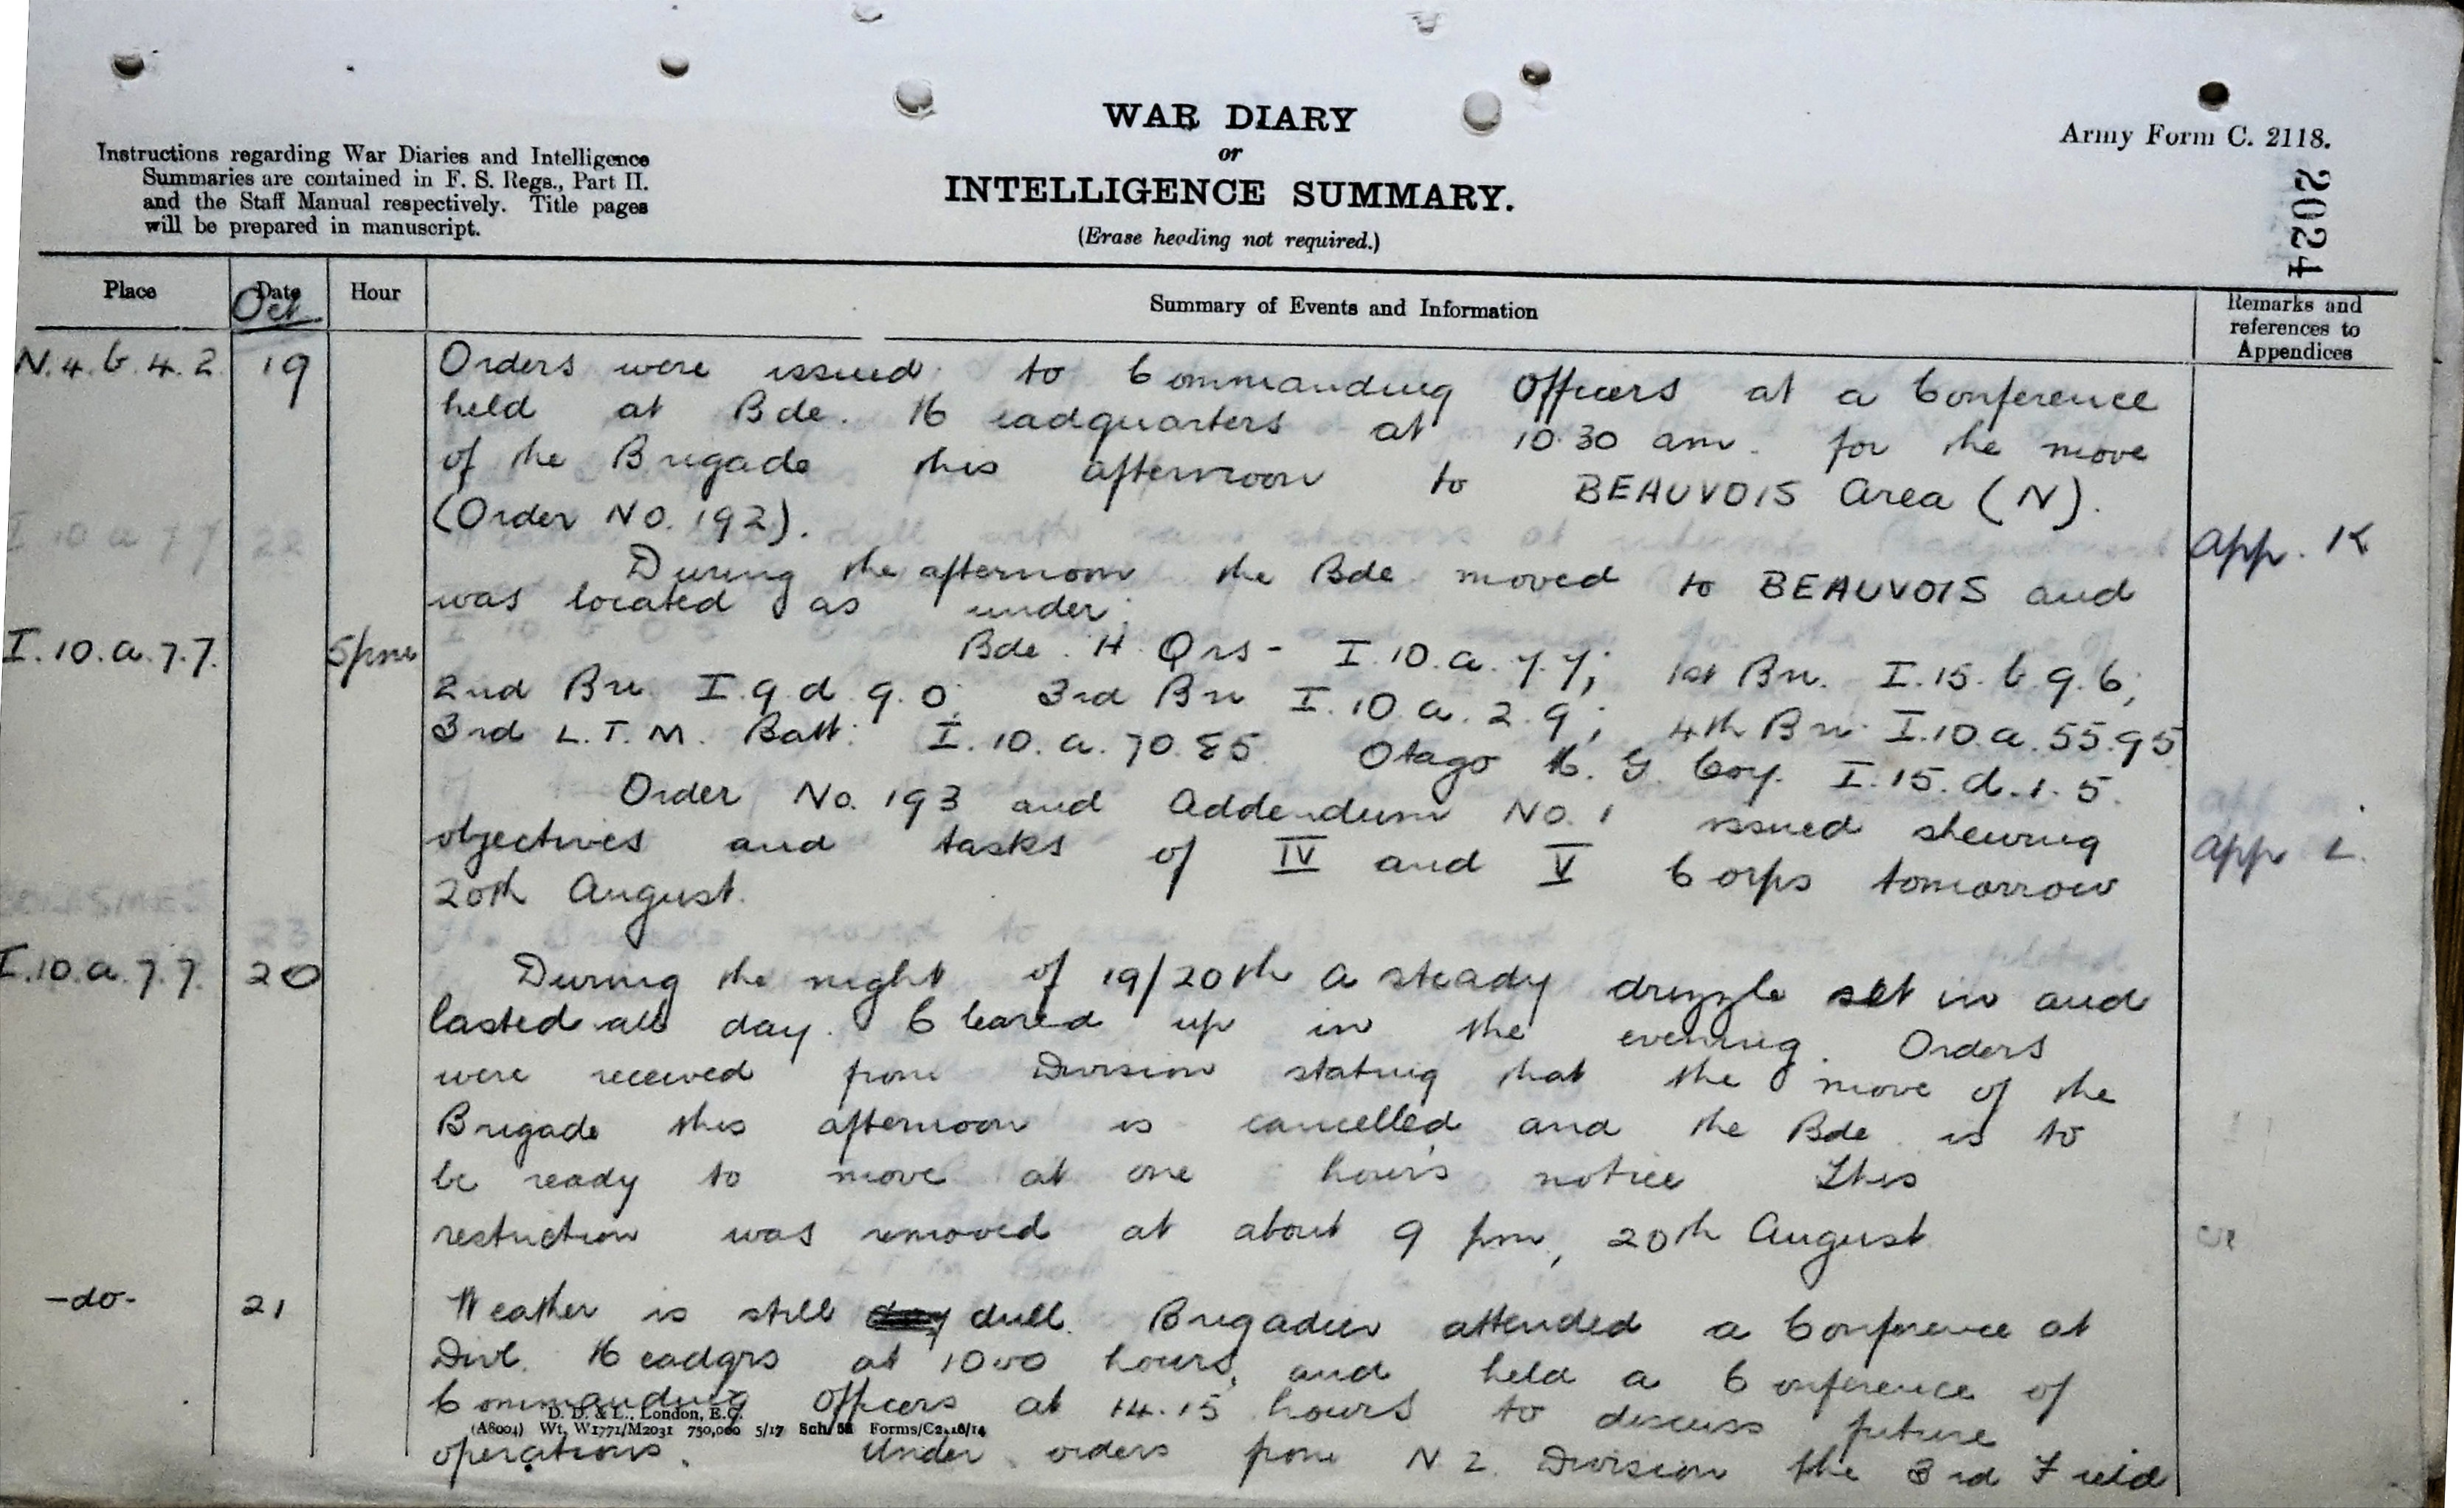 WAR DIARY
or
INTELLIGENCE SUMMARY.
(Erase heading not required.)
Army Form C. 2118.
2024
Instructions regarding War Diaries and Intelligence
Summaries are contained in F. S. Regs., Part II.
and the Staff Manual respectively. Title pages
will be prepared in manuscript.
Place Date Hour Summary of Events and Information Remarks and references to Appendices
Oct
N.4.b.4.2 19 Orders were issued to Commanding Officers at a Conference
held at Bde. Headquarters at 10.30 am. for the move
of the Brigade this afternoon to BEAUVOIS Area (N).
(Order No. 192). app. K
During the afternoon the Bde moved to BEAUVOIS and
was located as under:
I.10.a.7.7. 5pm Bde. H. Qrs - I.10.a.7.7; 1st Bn. I.15.b.9.6;
2nd Bn. I.9.d.9.0; 3rd Bn I.10.a.2.9; 4th Bn. I.10.a.55.95
3rd L.T.M. Batt: I.10.a.70.85 Otago M.G. Coy. I.15.d.1.5.
Order No. 193 and Addendum No. 1 issued shewing
objectives and tasks of IV and V Corps tomorrow app L.
20th August.
I.10.a.7.7. 20 During the night of 19/20th a steady drizzle set in and
lasted all day. Cleared up in the evening. Orders
were received from Division stating that the move of the
Brigade this afternoon is cancelled and the Bde is to
be ready to move at one hour's notice This
restriction was removed at about 9 pm, 20th August
-do- 21 Weather is still dull. Brigadier attended a Conference at
Divl. Headqrs at 1000 hours, and held a Conference of
Commanding Officers at 14.15 hours to discuss future
operations. Under orders from N.Z. Division the 3rd Field
D. D. & L., London, E.C.
(A8004) Wt. W1771/M2031 750,000 5/17 Sch/ Forms/C2118/14